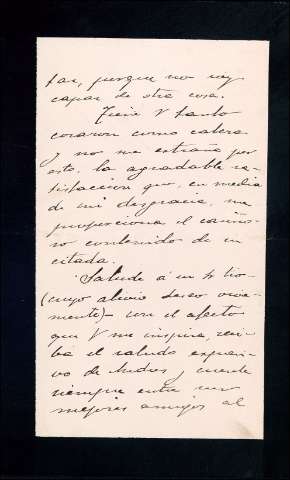 tar, porque no soy
capaz de otra cosa.
Tiene V tanto
corazon como cabeza
y no me extraña por
esto, la agradable sa-
tisfaccion que, en medio
de mi desgracia, me
proporciona el cariño-
so contenido de su
citada.
Salude á su Sr tio
(cuyo alivio deseo viva-
mente) con el afecto
que V me inspira, reci-
ba el saludo expresi-
vo de todos y cuente
siempre entre sus
mejores amigos al